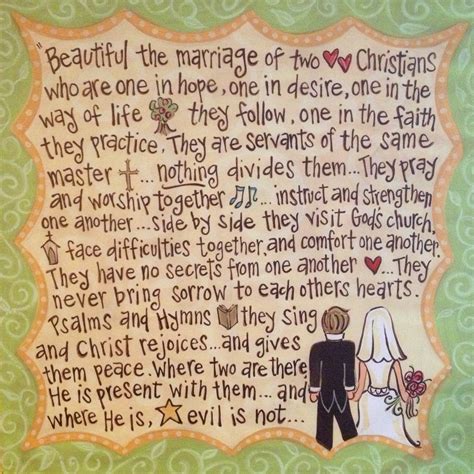 "Beautiful the marriage of two Christians
who are one in hope, one in desire, one in the
way of life they follow, one in the faith
they practice. They are servants of the same
master ... nothing divides them... They pray
and worship together ... instruct and strengthen
one another... side by side they visit God's church,
face difficulties together, and comfort one another.
They have no secrets from one another ... They
never bring sorrow to each others hearts.
Psalms and Hymns they sing
and Christ rejoices... and gives
them peace. Where two are there
He is present with them... and
where He is, evil is not...